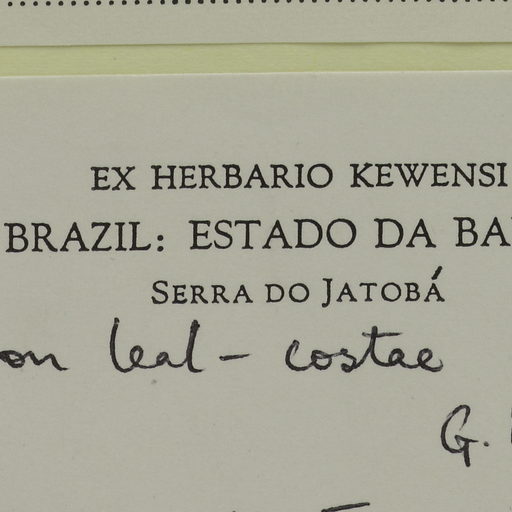 EX HERBARIO KEWENSI
BRAZIL: ESTADO DA BA
SERRA DO JATOBÁ
on leal-costae
G.